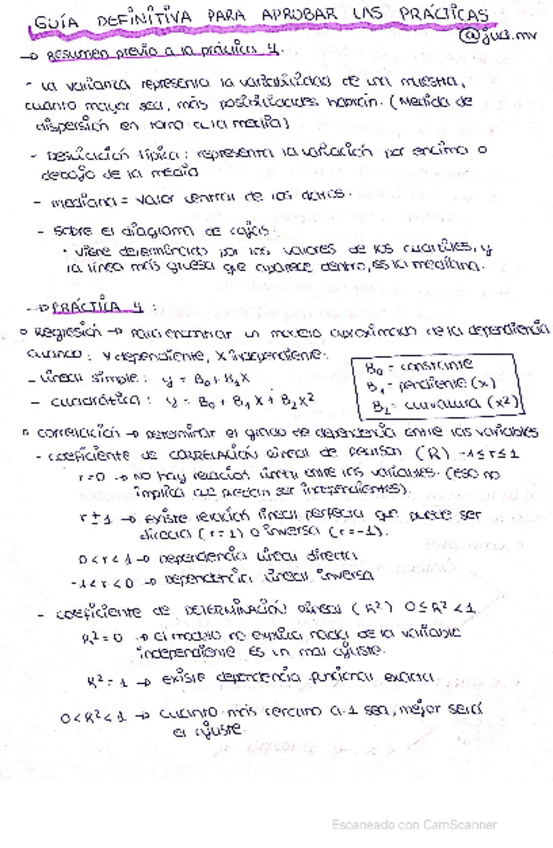 GUÍA DEFINITIVA PARA APROBAR LAS PRÁCTICAS
@jud.mv
→ Resumen previo a la práctica 4.
- La varianza representa la variabilidad de una muestra,
cuanto mayor sea, más posibilidades habrán. (Medida de
dispersión en torno a la media)
- Desviación típica: representa la variación por encima o
debajo de la media
- mediana = valor central de los datos.
- sobre el diagrama de cajas:
• viene determinado por los valores de los cuartiles, y
la línea más gruesa que aparece dentro, es la mediana.
-→ PRÁCTICA 4:
o Regresión → Para encontrar un modelo aproximado de la dependencia
cuando: Y dependiente, X independiente:
- Lineal simple: y = B₀ + B₁X
- cuadrática: y = B₀ + B₁X + B₂X²
B₀ = constante
B₁ = pendiente (x)
B₂ = curvatura (x²)
o correlación → Determinar el grado de dependencia entre las variables
- coeficiente de CORRELACIÓN lineal de pearson (R) -1≤r≤1
r=0 → NO hay relación lineal entre las variables. (eso no
implica que puedan ser independientes).
r±1 → existe relación lineal perfecta que puede ser
directa (r=1) o inversa (r=-1).
0<r<1 → Dependencia lineal directa
-1<r<0 → Dependencia lineal inversa
- coeficiente de DETERMINACIÓN lineal (R²) 0≤R²<1
R²=0 → el modelo no explica nada de la variable
independiente es un mal ajuste.
R²=1 → existe dependencia funcional exacta
0<R²<1 → cuanto más cercano a 1 sea, mejor será
el ajuste.
Escaneado con CamScanner